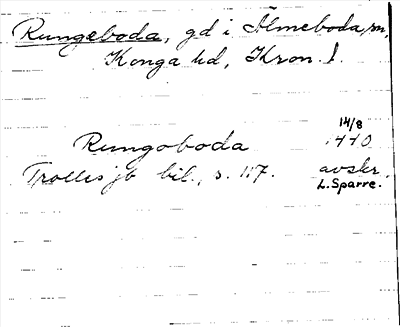 Rungeboda, gd i Älmeboda sn,
Konga hd, Kron. l.
14/8
Rungoboda 1410
Trolles jb bil., s. 117. avskr.
L. Sparre.